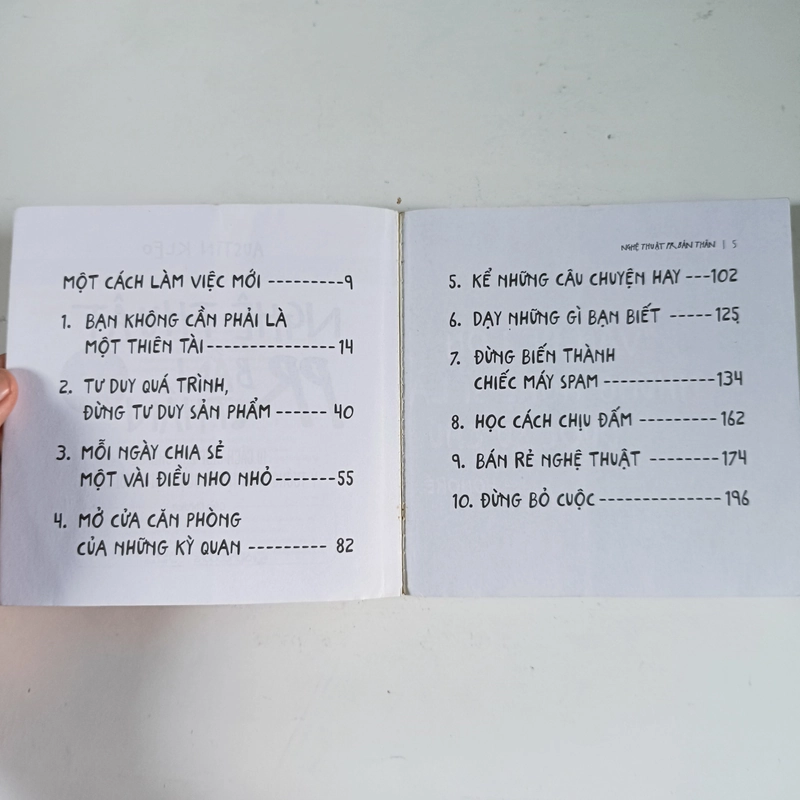 MỘT CÁCH LÀM VIỆC MỚI ---------9
1. BẠN KHÔNG CẦN PHẢI LÀ
MỘT THIÊN TÀI----------------14
2. TƯ DUY QUÁ TRÌNH,
ĐỪNG TƯ DUY SẢN PHẨM ------ 40
3. MỖI NGÀY CHIA SẺ
MỘT VÀI ĐIỀU NHO NHỎ-------55
4. MỞ CỬA CĂN PHÒNG
CỦA NHỮNG KỲ QUAN --------- 82
NGHỆ THUẬT PR BẢN THÂN | 5
5. KỂ NHỮNG CÂU CHUYỆN HAY ---102
6. DẠY NHỮNG GÌ BẠN BIẾT -----125
7. ĐỪNG BIẾN THÀNH
CHIẾC MÁY SPAM -------------134
8. HỌC CÁCH CHỊU ĐẤM --------162
9. BÁN RẺ NGHỆ THUẬT --------174
10. ĐỪNG BỎ CUỘC --------------196